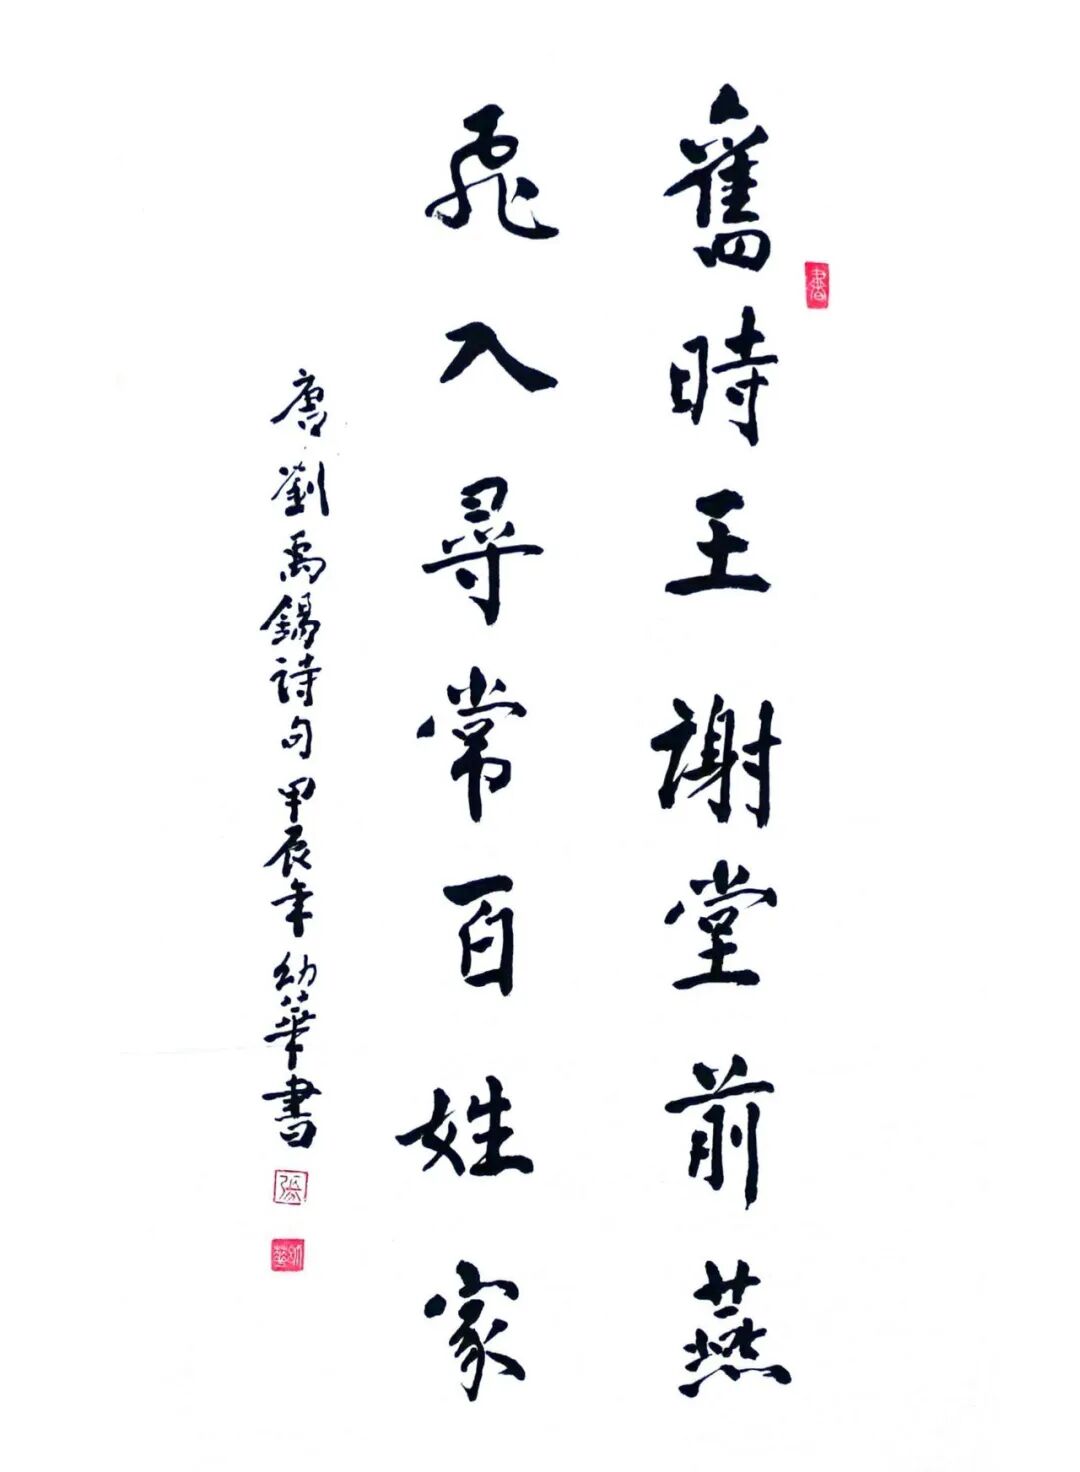 舊時王謝堂前燕
飛入尋常百姓家
唐劉禹錫詩句甲辰年幼華書
張
幼華